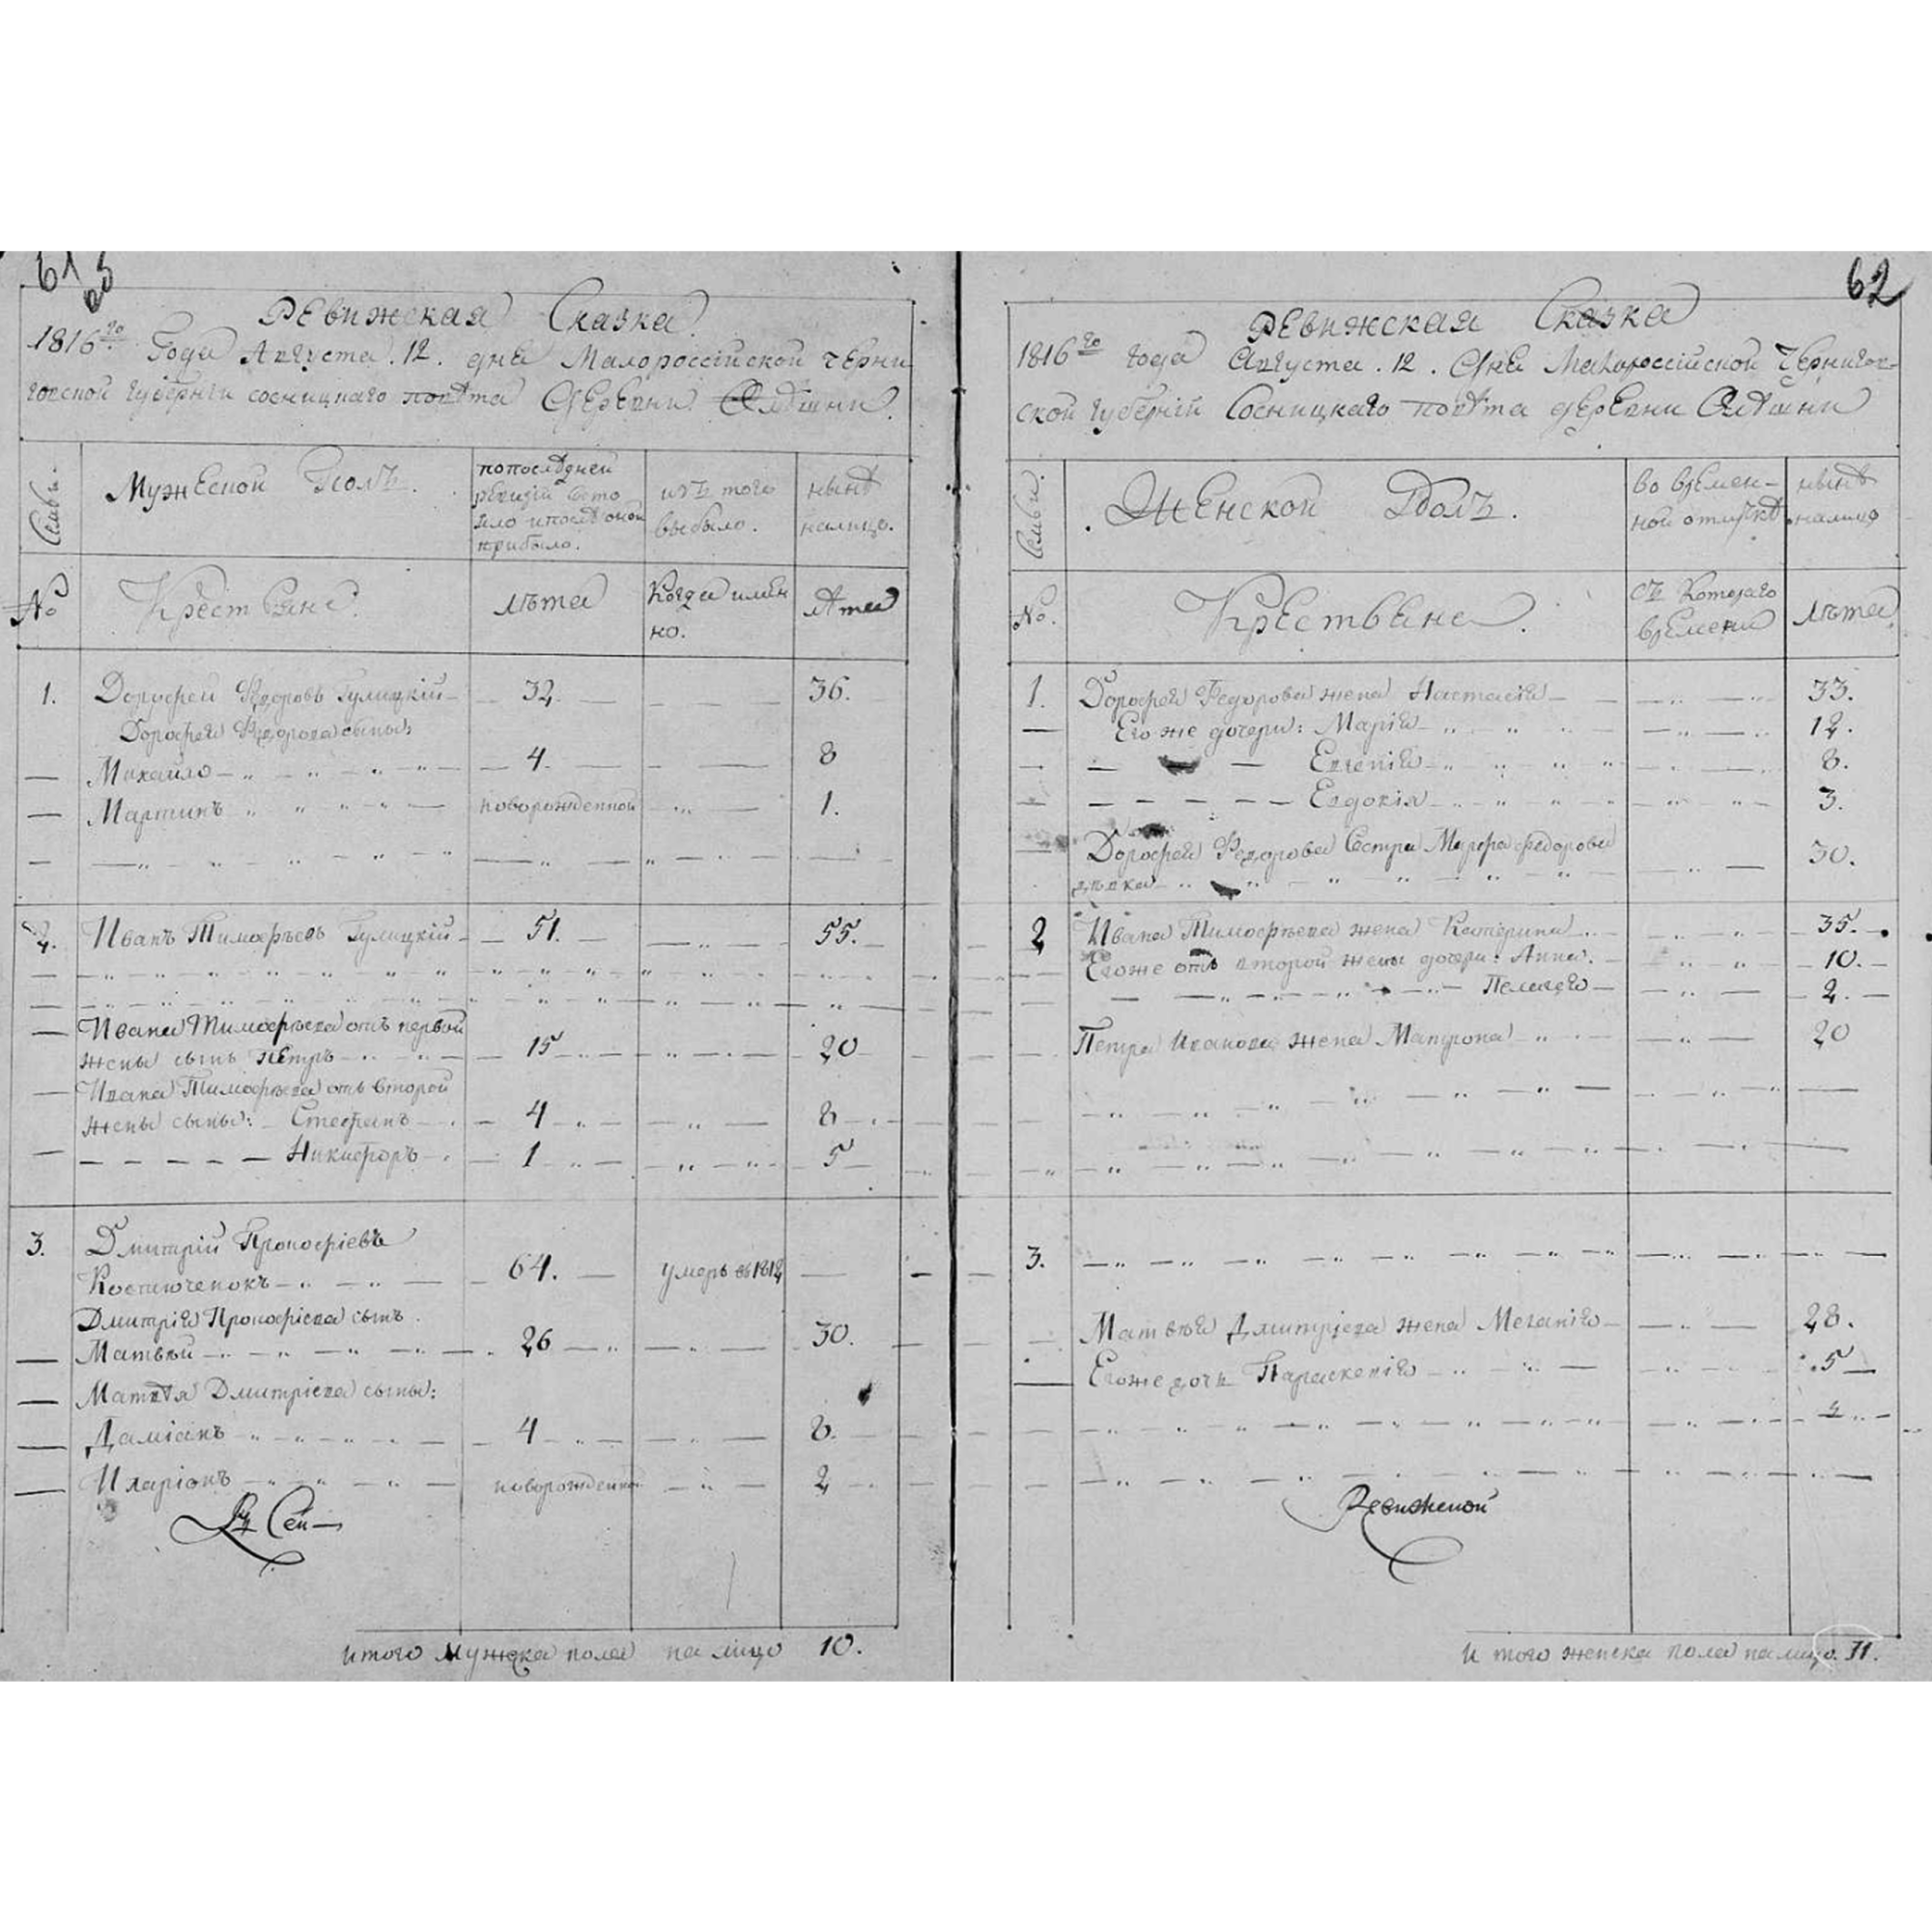 61
РЕвижская Сказка
1816го Года Августа 12. дня Малороссійской черни
говской губерніи сосницкаго повѣта дЕрЕвни
Семьи.
МужЕской Полъ.
по послѣдней
ревизіи состо
яло и послѣ оной
прибыло.
изъ того
выбыло.
нынѣ
налицо.
No
КрестЬяне.
лѣта
Когда имян
но.
лѣта
1. Дорофей Федоровъ Гулицкій 32. 36.
Дорофея Федорова сыны
Михайло 4. 8
Мартинъ новорожденной 1.
2. Иванъ Тимофѣевъ Гулицкій 51. 55.
Ивана Тимофѣева отъ первой
жены сынъ Петръ 15 20
Ивана Тимофѣева отъ второй
жены сыны: Стефанъ 4 8
Никифоръ 1 5
3. Дмитрій Прокофіевъ
Костюченокъ 64. умеръ въ 1812
Дмитрія Прокофіева сынъ
Матвѣй 26 30.
Матвѣя Дмитріева сыны:
Даміанъ 4 8.
Иларіонъ новорожденной 2
итого мужска пола на лицо 10.
62
РЕвижская Сказка
1816го года Августа. 12. дня Малороссійской Чернигов-
ской губерніи Сосницкаго повѣта дЕрЕвни
Семьи.
ЖЕнской Полъ.
во времен-
ной отлучкѣ
нынѣ
налицо
No.
КрЕстьянЕ.
съ Котораго
времени
лѣта.
1. Дорофея Федорова жена Настасія 33.
Его же дочери: Марія 12.
Евгенія 8.
Евдокія 3.
Дорофея Федорова Сестра Марфа Федорова
дѣвка 30.
2 Ивана Тимофѣева жена Катерина 35.
Егоже отъ второй жены дочери: Анна. 10.
Пелагея 2.
Петра Иванова жена Матрона 20
3.
Матвѣя Дмитріева жена Меланія 28.
Егоже дочь Параскевія 5
Ревижской
И того женска пола на лицо. 11.